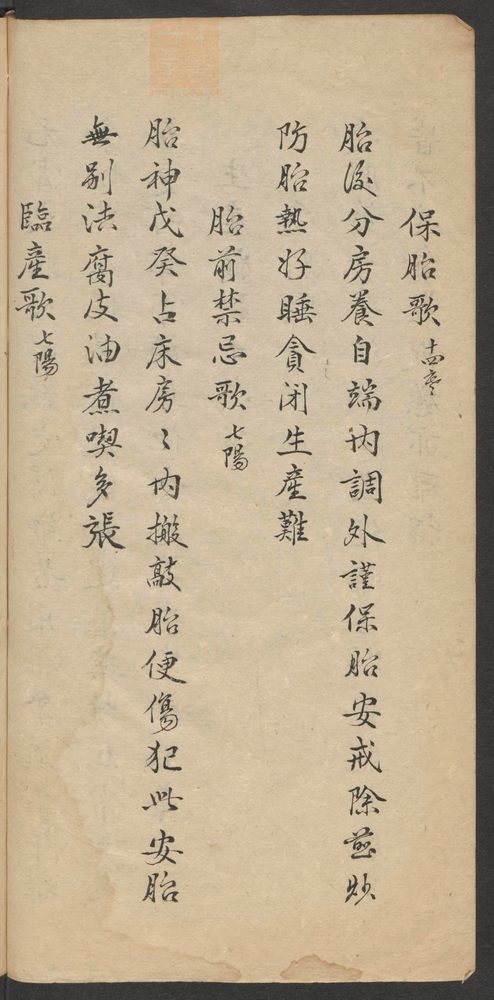 保胎歌 十四寒
胎後分房養自端内調外謹保胎安戒除煎炒
防胎熱好睡貪闭生產難
胎前禁忌歌 七陽
胎神戊癸占床房〻内搬敲胎便傷犯此安胎
無别法腐皮油煮喫多張
臨產歌 七陽